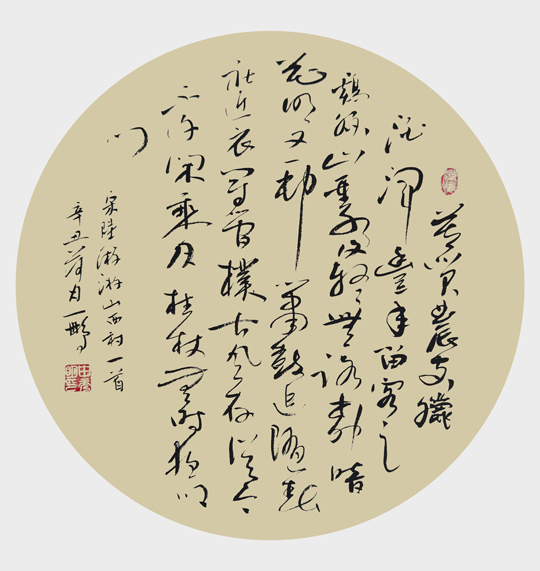 莫笑農家臘
酒渾豐年留客足
雞豚山重水複疑無路柳暗
花明又一村簫鼓追隨春
社近衣冠簡樸古風存從今
若許閑乘月拄杖無時夜叩
門
宋陸游游山西村一首
辛丑荷月一鵬